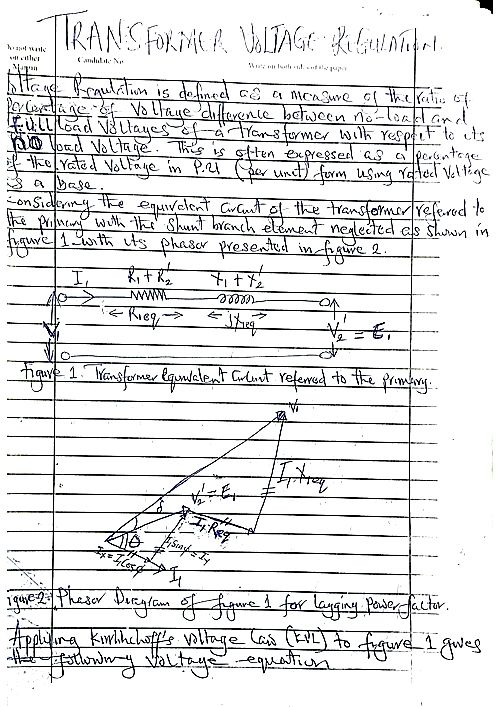 TRANSFORMER VOLTAGE REGULATION.
Do not write
on either
Margin
Candidate No
Write on both sides of the paper
Voltage Regulation is defined as a measure of the ratio of
Percentage of Voltage difference between no-load and
Full load Voltages of a transformer with respect to its
no load Voltage. This is often expressed as a percentage
of the rated Voltage in P.U (per unit) form using rated Voltage
as a base.
Considering the equivalent Circuit of the transformer referred to
the primary with the shunt branch element neglected as shown in
figure 1 with its phasor presented in figure 2.
I₁ R₁ + R₂' X₁ + X₂'
← R₁eq → ← jX₁eq →
V₂' = E₁
Figure 1. Transformer Equivalent Circuit referred to the primary.
V₁
I₁ X₁eq
V₂' = E₁
δ
I₁ R₁eq
θ
I₁sinφ = Iy
Ix = I₁cosφ
I₁
Figure 2: Phasor Diagram of figure 1 for lagging power factor.
Applying Kirhhchoff's voltage Law (KVL) to figure 1 gives
the following voltage equation